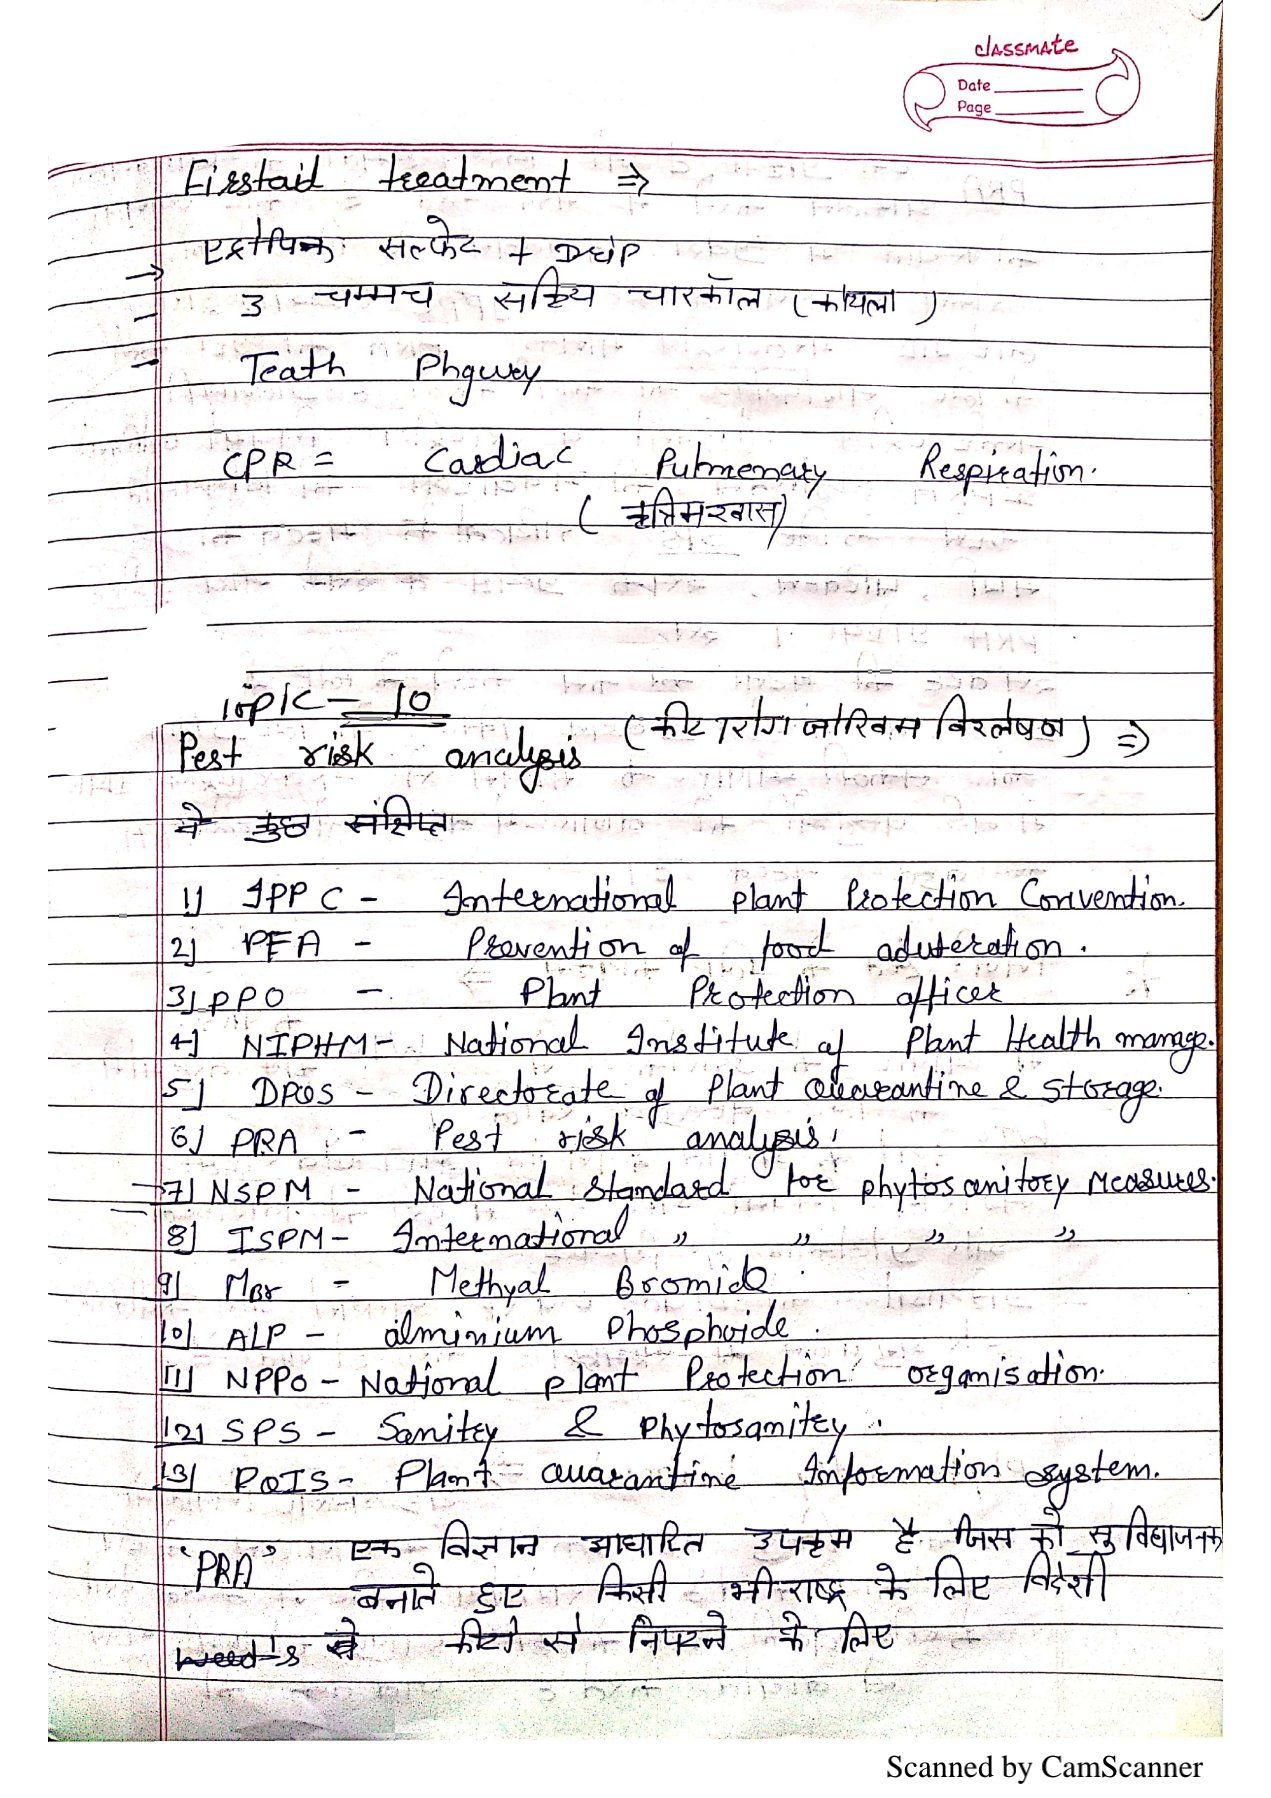 classmate
Date
Page
Firstaid treatment ⇒
एट्रोपिक सल्फेट +
3 चम्मच सक्रिय चारकॉल (कोयला)
Teath
CPR = Cardiac Pulmenary Respiration.
(कृत्रिमश्वास)
Topic - 10
Pest risk analysis (कीट रोग जोखिम विश्लेषण) ⇒
में कुछ संक्षिप्त
1) IPPC - International plant Protection Convention.
2) PFA - Prevention of food aduteration.
3) PPO - Plant Protection officer
4) NIPHM - National Institute of Plant Health manage.
5) DPQS - Directorate of Plant Quarantine & Storage.
6) PRA - Pest risk analysis.
7) NSPM - National Standard for phytosanitory Measures.
8) ISPM - International " " " "
9) MBr - Methyal Bromide.
10) ALP - alminium Phosphoide.
11) NPPO - National plant Protection organisation.
12) SPS - Sanitry & Phytosanitry.
13) PQIS - Plant Quarantine Information system.
'PRA' एक विज्ञान आधारित उपक्रम है जिस को सुविधाजनक
बनाते हुए किसी भी राष्ट्र के लिए विदेशी
weed's से कीटो से निपटने के लिए
Scanned by CamScanner